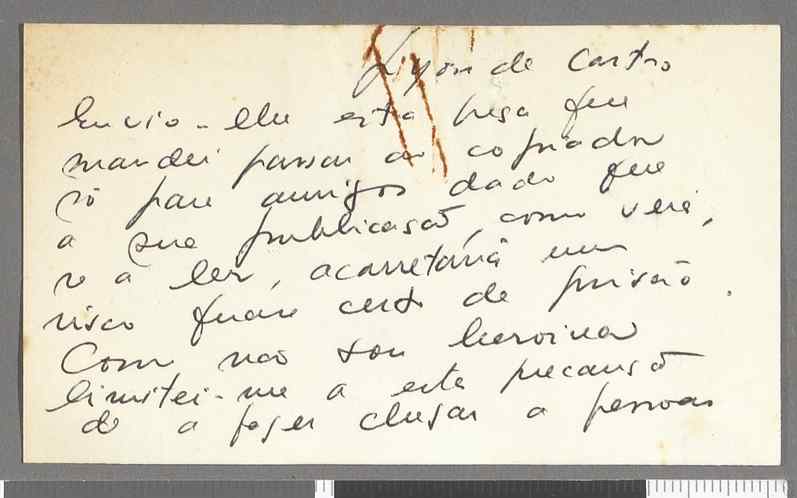 Lyon de Castro
Envio-lhe esta pesa que
mandei passar ao copiador
só para amigos dado que
a sua publicasão, como verá,
se a ler, acarretaria um
risco quase certo de prisão.
Como não sou heroina
limitei-me a esta precausão
de a fazer chegar a pessoas